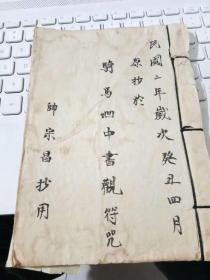 民國二年歲次癸丑四月
原抄於
騎馬山中書觀符咒
帥宗昌抄用